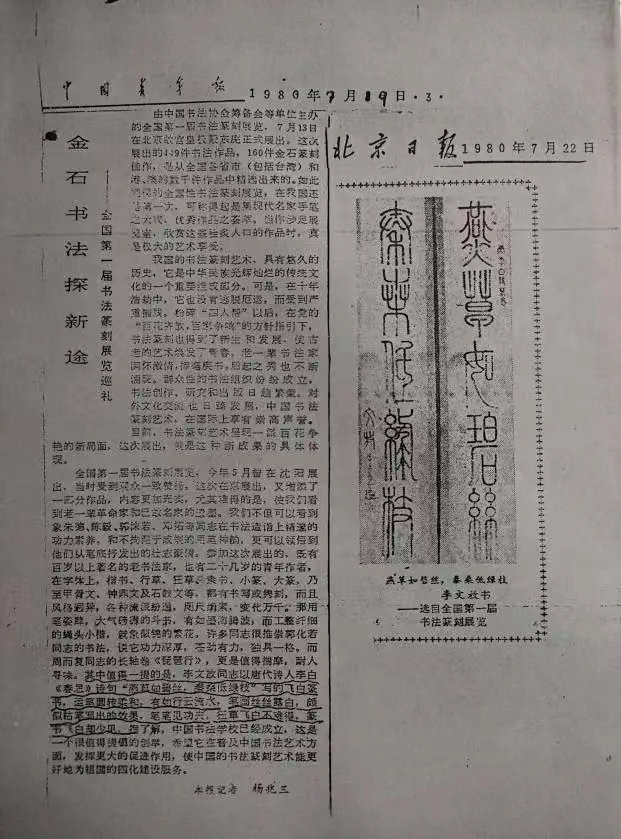 中国青年报 1980年7月19日·3·
金石书法探新途
——全国第一届书法篆刻展览巡礼
由中国书法协会筹备会等单位主办
的全国第一届书法篆刻展览，7月13日
展出的449件书法作品，160件金石篆刻
我国的书法篆刻艺术，具有悠久的
历史，它是中华民族光辉灿烂的传统文
化的一个重要组成部分。可是，在十年
浩劫中，它也没有逃脱厄运，而受到严
重摧残。粉碎“四人帮”以后，在党的
“百花齐放，百家争鸣”的方针指引下，
书法篆刻也得到了新生和发展，使古
老的艺术焕发了青春。老一辈书法家
涌现。群众性的书法组织纷纷成立，
书法创作、研究和出版日趋繁荣。对
外文化交流也日臻发展，中国书法篆
刻艺术，在国际上享有崇高声誉。
目前，书法篆刻艺术呈现一派百花争
艳的新局面，这次展出，就是这种新成果的具体体
现。
全国第一届书法篆刻展览，今年5月曾在沈阳展
出，当时受到观众一致赞扬，这次在京展出，又增添了
一部分作品，内容更加充实，尤其难得的是，使我们看
到老一辈革命家和已故名家的遗墨。我们不但可以看到
象朱德、陈毅、郭沫若、邓拓等同志在书法造诣上精湛的
功力素养，和不拘泥于成规的笔墨神韵，更可以领悟到
他们从笔底抒发出的壮志豪情。参加这次展出的，既有
百岁以上著名的老书法家，也有二十几岁的青年作者，
在字体上，楷书、行草、狂草、隶书、小篆、大篆，乃
至甲骨文、钟鼎文及石鼓文等，都有书写或镌刻，而且
风格迥异，各种流派纷逞，咫尺清某，变化万千。那用
笔姿肆，大气磅礴的斗书，有如望海腾波，而工整纤细
的蝇头小楷，就象似锦的繁花。许多同志很推崇郭化若
同志的书法，说它功力深厚，苍劲有力，独具一格。而
周而复同志的长轴卷《琵琶行》，更是值得揣摩，耐人
寻味。其中值得一提的是，李文放同志以唐代诗人李白
《春思》诗句“燕草如碧丝，秦桑低绿枝”写的飞白篆
书，运笔圆转柔和，有如行云流水，笔画丝丝露白，颇
似枯笔写出的效果，笔笔见功夫，狂草飞白不难得，篆
书飞白却少见。据了解，中国书法学校已经成立，这是
一个很值得提倡的创举，希望它在普及中国书法艺术方
面，发挥更大的促进作用，使中国的书法篆刻艺术能更
好地为祖国的四化建设服务。
本报记者 杨兆三
北京日报 1980年7月22日
燕草如碧丝
秦桑低绿枝
燕草如碧丝，秦桑低绿枝
李文放书
——选自全国第一届
书法篆刻展览